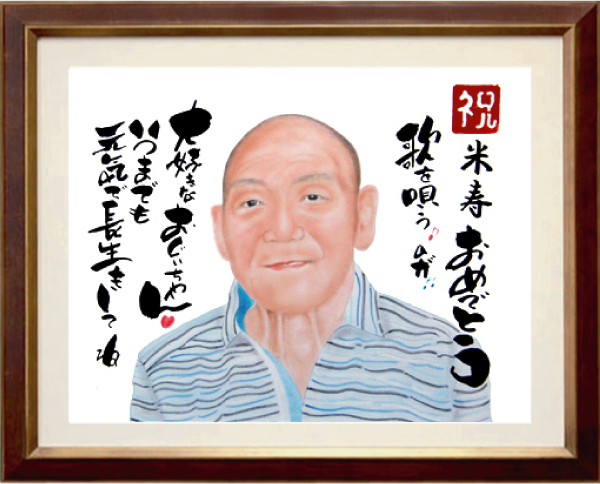 祝
米寿おめでとう
歌を唄うのが
大好きなおじいちゃん
いつまでも
元気で長生きしてね